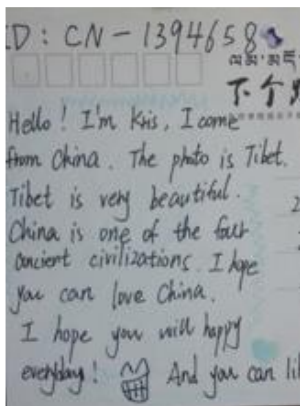 ID: CN-1394658
下个
Hello! I'm Kris, I come
from China. The photo is Tibet.
Tibet is very beautiful.
China is one of the four
ancient civilizations. I hope
you can love China.
I hope you will happy
everyday! And you can li